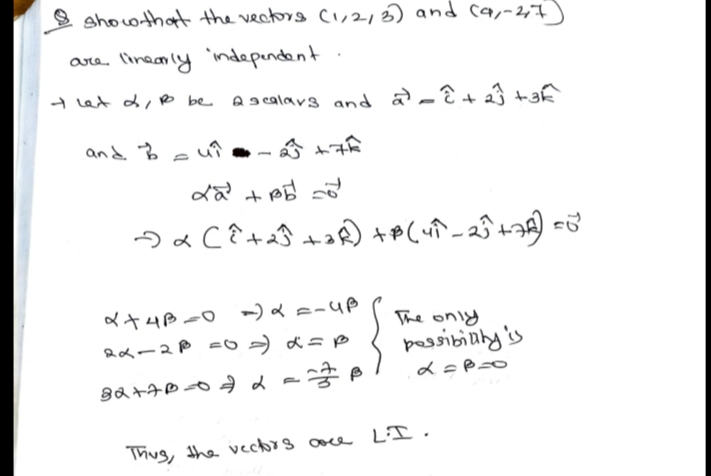 Q show that the vectors (1,2,3) and (4,-2,7)
are linearly independent.
→ Let α, β be 2 scalars and a⃗ = î + 2ĵ + 3k̂
and b⃗ = 4î - 2ĵ + 7k̂
αa⃗ + βb⃗ = 0⃗
⇒ α(î + 2ĵ + 3k̂) + β(4î - 2ĵ + 7k̂) = 0⃗
α + 4β = 0 ⇒ α = -4β
2α - 2β = 0 ⇒ α = β
3α + 7β = 0 ⇒ α = -7/3 β
} The only
possibility is
α = β = 0
Thus, the vectors are L.I.